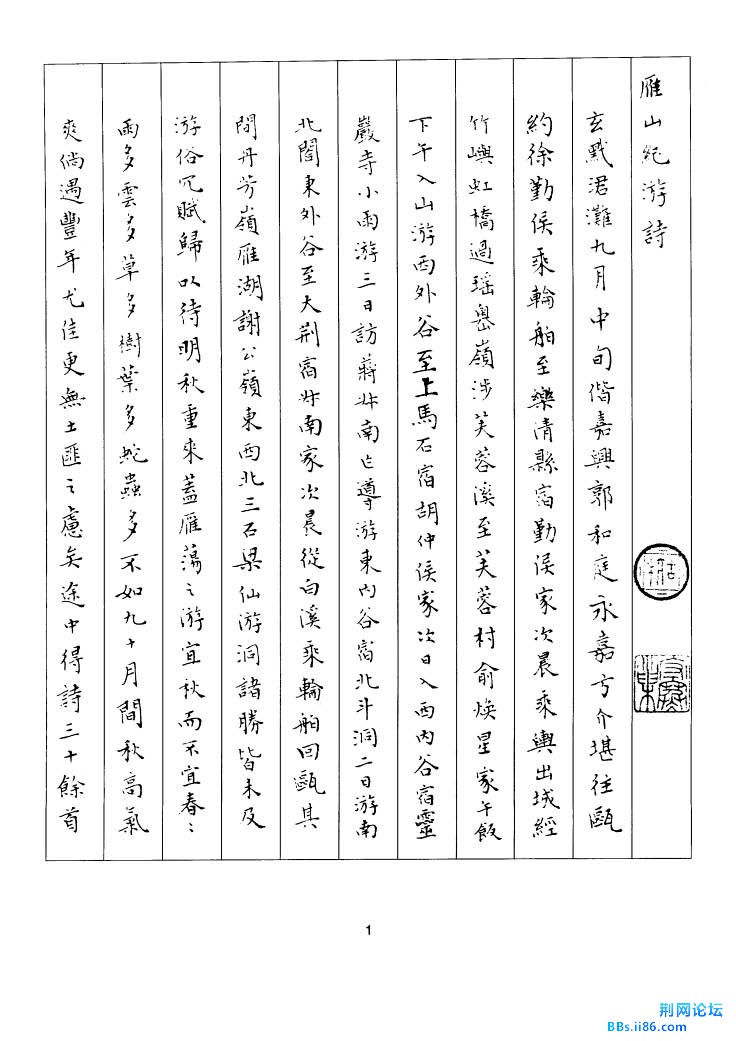 雁山紀游詩
玄黓涒灘九月中旬偕嘉興郭和庭永嘉方介堪往甌
約徐勤侯乘輪船至樂清縣宿勤侯家次晨乘輿出城經
竹嶼虹橋過瑶嶴嶺涉芙蓉溪至芙蓉村俞煥星家午飯
下午入山游西外谷至上馬石宿胡仲侯家次日入西内谷宿靈
巖寺小雨游三日訪蔣叔南乞導游東内谷宿北斗洞二日游南
北閣東外谷至大荆宿叔南家次晨從白溪乘輪船回甌其
間丹芳嶺雁湖謝公嶺東西北三石梁仙游洞諸勝皆未及
游俗冗賦歸以待明秋重來蓋雁蕩之游宜秋而不宜春〻
雨多雲多草多樹葉多蛇蟲多不如九十月間秋高氣
爽倘遇豐年尤佳更無土匪之慮矣途中得詩三十餘首
1
荆网论坛
BBs.ii86.com